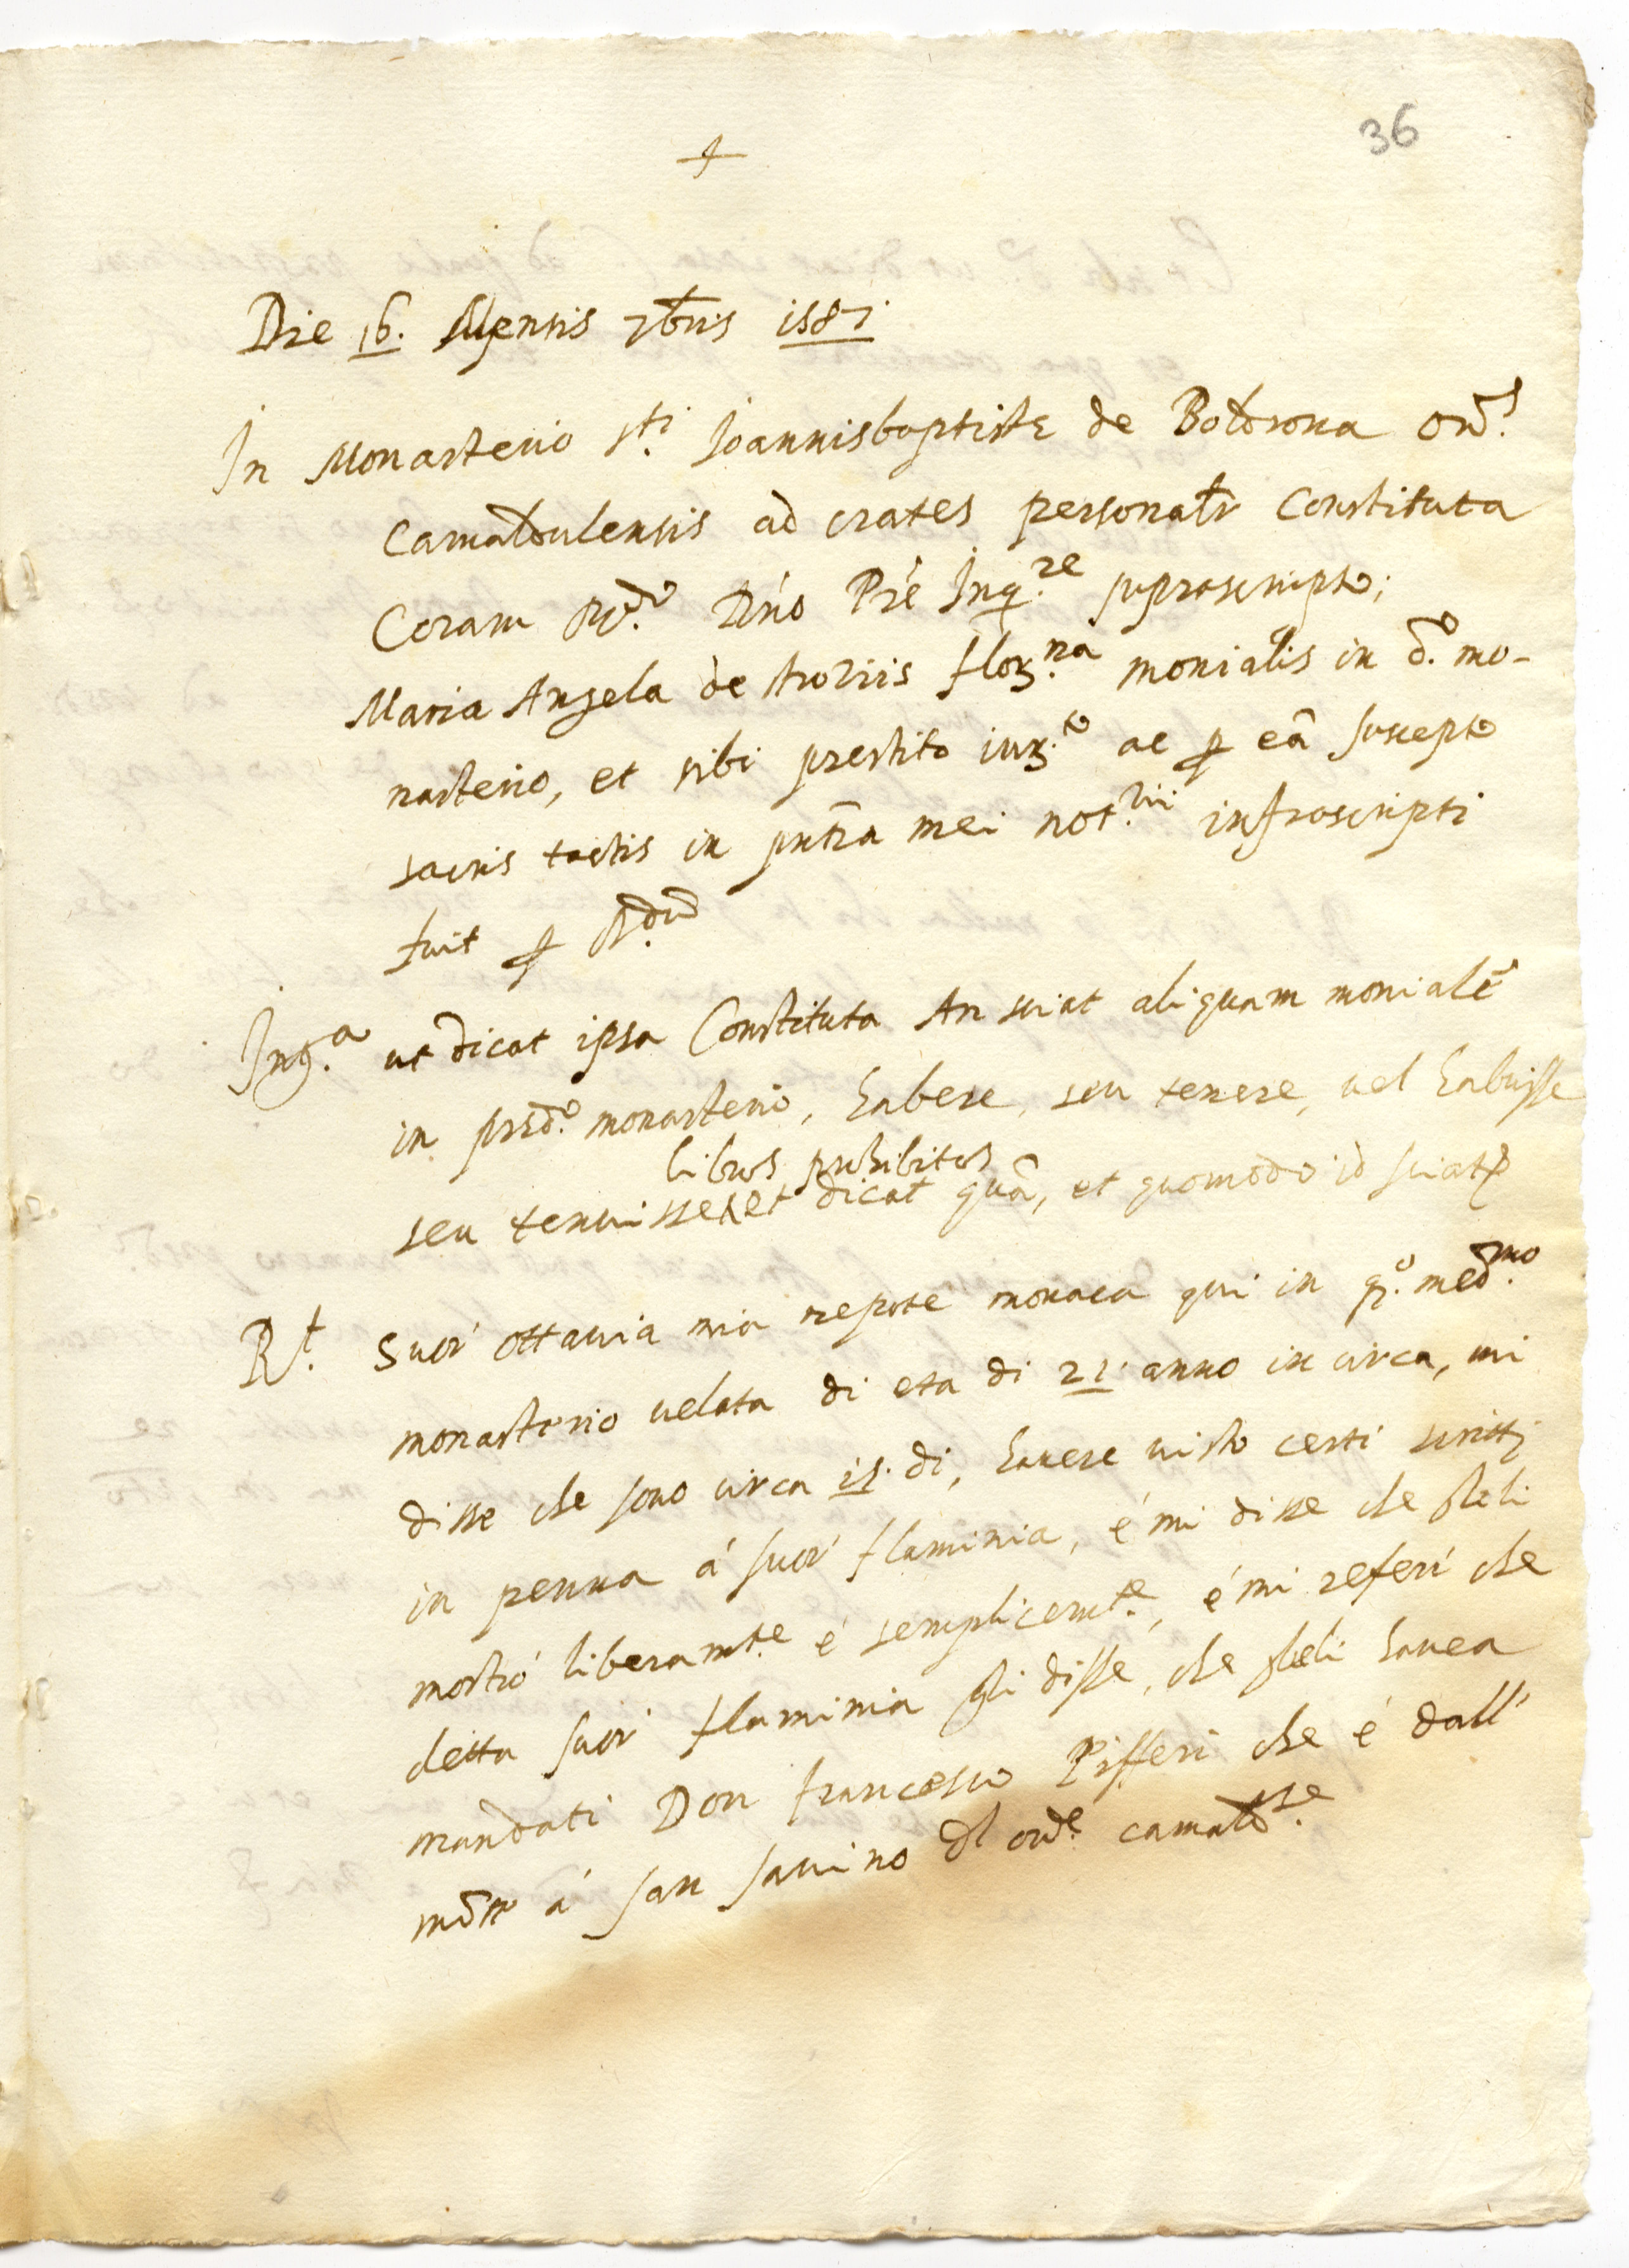 36
+
Die 16. Mensis 7bris 1587
In Monasterio s.ti Joannisbaptistę de Boldrona ord.s
Camaldulensis ad crates personalr Constituta
Coram R.do Dno Pre Inq.re suprascripto;
Maria Angela de flor.na monialis in d.o mo-
nasterio, et sibi prestito iur.to ac p eā suscepto
sacris tactis in pntia mei not.rii infrascripti
fuit p R.dum
Ing.a ut dicat ipsa Constituta An sciat aliquam monialē
in pred.o monasterio, habere, seu tenere, vel habuisse
libros prohibitos
seu tenuisse et dicat quā, et quomodo id sciat
R.t Suor ottavia mia nepote monaca qui in q.o med.mo
monasterio velata di eta di 21 anno in circa, mi
disse che sono circa 15. di, havere visto certi scritti
in penna á suor flaminia, é mi disse che glieli
mostró liberamte é semplicem.te, é mi referí che
detta suor flaminia gli disse, che glieli havea
mandati Don francesco Pifferi che é dall'
á san savino dl ord.e camald.se